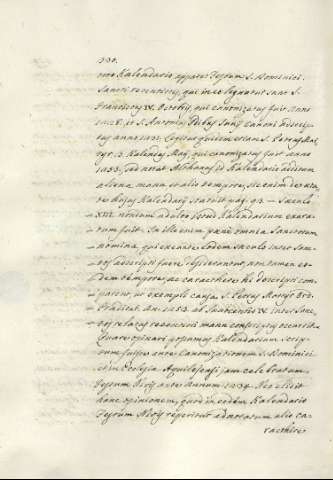 130.
mo Kalendario apparet Festum S. Dominici.
Sancti recentiores, qui in eo leguntur sunt S.
Franciscus IV. Octobris, qui canonizatus fuit anno
1228. et S. Antonius
tus anno 1232. Legitur quidem etiam S. Petrus Mar
tyr. 3. Kalendas Maij, qui canonizatus fuit anno
1253. sed notat Kalendario additum
aliena manu et alio tempore,
hujus Kalendarij statuit pag. 93 — Saeculo
XIII. Kalendarium exara
tum fuit. In illo enim pene omnia Sanctorum
nomina, qui exeunte eodem saeculo inter Sanc
tos adscripti fuere
dem tempore, ac caractere hi descripti com
parent, ut exempli causa S. Petrus Martyr Ord.
Praedicat. an. 1253. ab Innocentio IV. inter Sanc
tos relatus recentiori manu conscriptus occurrit.
Quare opinari possumus Kalendarium scrip
tum fuisse ante Canonizationem S. Dominici
et in Ecclesia Aquilejensi jam celebratum
Festum ante Annum 1234. Nec elidit
hanc opinionem, quod in eodem Kalendario
Festum reperitur adnotatum alio ca
ractere